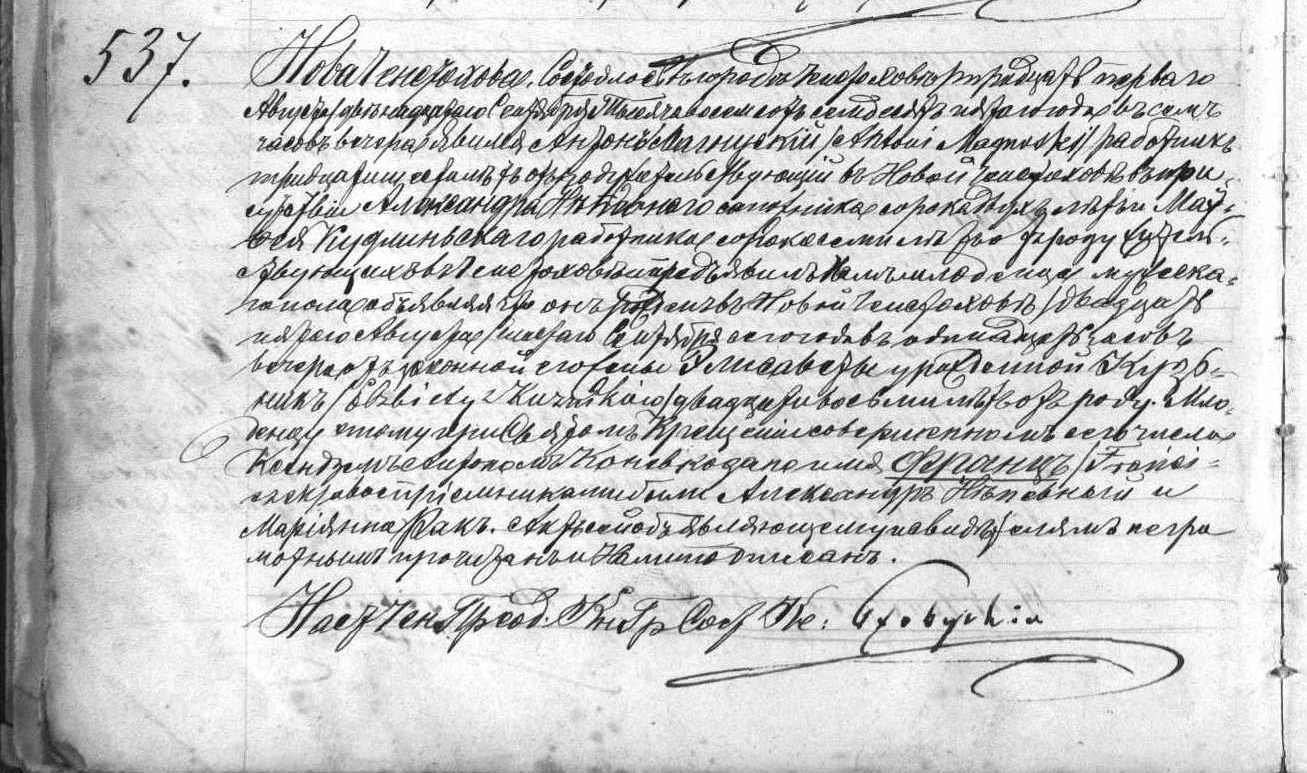 537.
Нова Ченстохова. Состоялось въ городѣ Ченстоховѣ тридцать перваго
Августа /двѣнадцатаго Сентября/ тысяча восемсотъ семдесятъ пятаго года въ семь
часовъ вечера. Явился Антонъ Магнуский /Antoni Magnuski/ работникъ
тридцати лѣтъ отъ роду жительствующій въ Новой Ченстоховѣ въ при-
сутствіи Александра сапожника сорока двухъ лѣтъ и Матѵ-
ося Кудлиньскаго работника сорока семи лѣтъ отъ роду житель-
ствующихъ въ Ченстоховѣ и предъявилъ Намъ младенца мужеска-
го пола объявляя что онъ родился въ Новой Ченстоховѣ /двадцать
пятаго Августа /шестаго Сентября/ сего года въ одинадцать часовъ
вечера отъ законной его жены Элисаветы урожденной
двадцати восьми лѣтъ отъ роду. Мла-
денцу этому при Святомъ Крещеніи совершенномъ сего числа
Ксендзомъ дано имя Францъ /Franci-
а воспріемниками были Александръ и
Маріянна Жакъ. Актъ сей объявляющему и свидѣтелямъ негра-
мотнымъ прочитанъ и Нами подписанъ.
Наст Чен Прзод. Кн Гр Сост Кс: